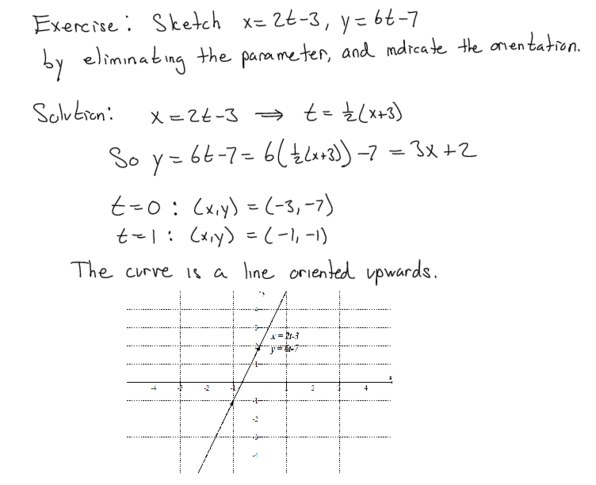 Exercise: Sketch x=2t-3, y=6t-7
by eliminating the parameter, and indicate the orientation.
Solution: x=2t-3 ⟹ t=½(x+3)
So y=6t-7=6(½(x+3))-7=3x+2
t=0: (x,y)=(-3,-7)
t=1: (x,y)=(-1,-1)
The curve is a line oriented upwards.
x=2t-3
y=6t-7
-4 -2 -1 1 2 4
-1
-2
-3
-4